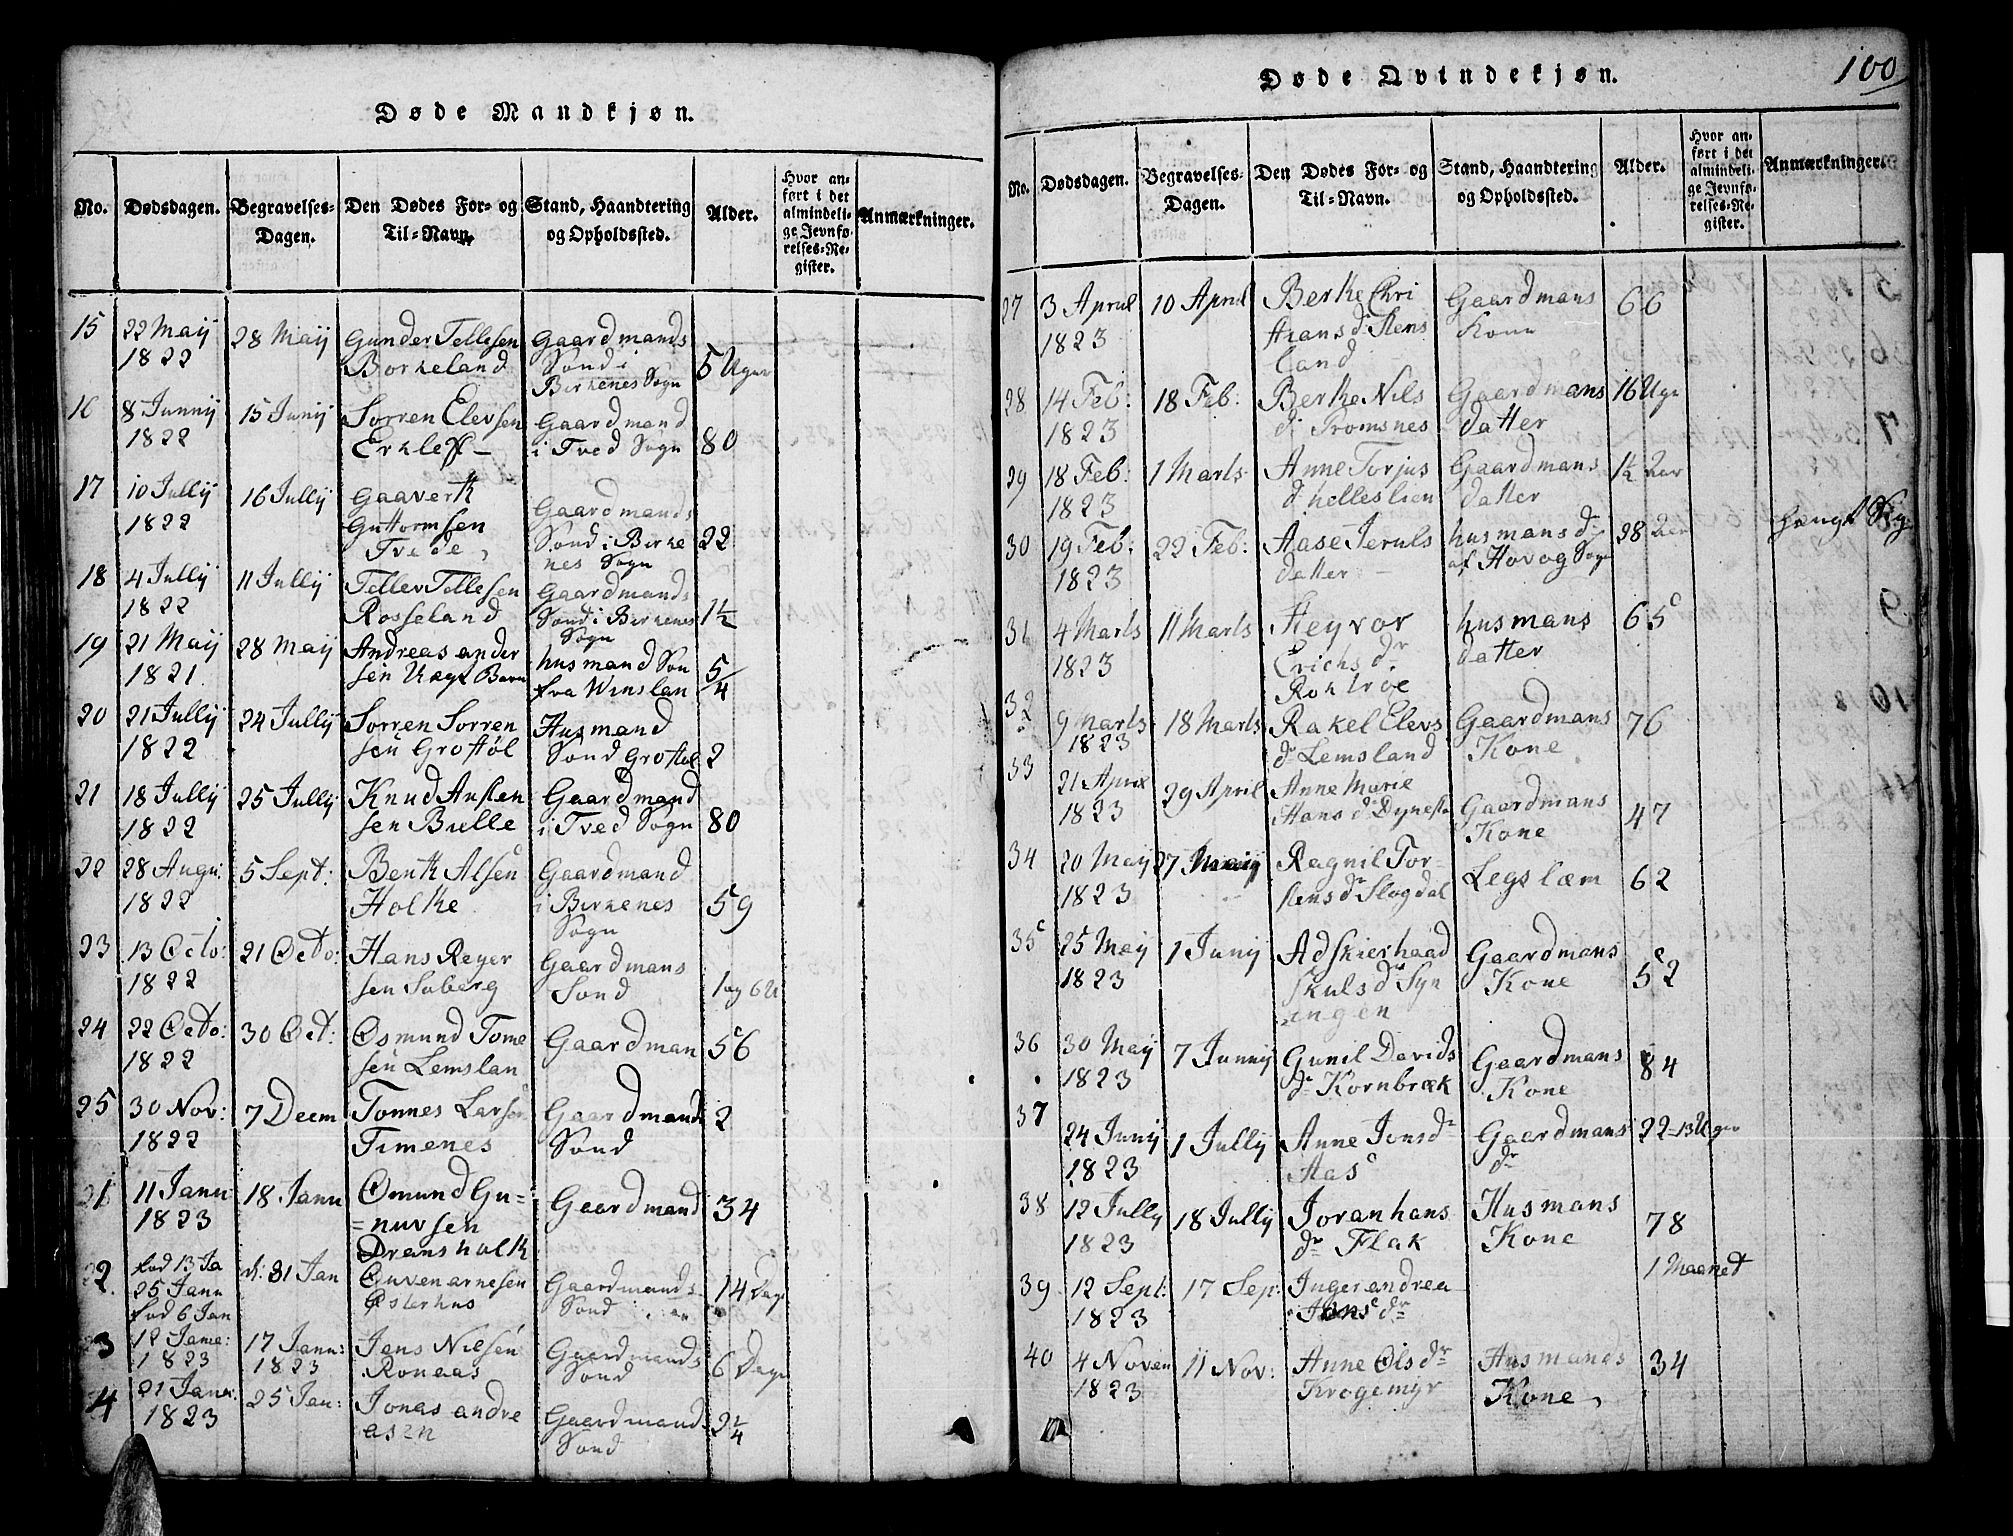 Døde Mandkjøn.
No.
Dødsdagen.
Begravelses-
Dagen.
Den Dødes For- og
Til-Navn.
Stand, Haandtering
og Opholdssted.
Alder.
Hvor an-
ført i det
almindeli-
ge Jevnfø-
relses-Re-
gister.
Anmærkninger.
15
22 Maij
1822
28 Maij
Gunder Tellesen
Borkeland
Gaardmands
Sond i
Birkenes Sogn
5 Uger
16
8 Junnij
1822
15 Junij
Sorren Elevsen
Gaardmand
i Tved Sogn
80
17
10 Jullij
1822
16 Jullij
Gaaverth
Guttormsen
Tvede
Gaardmands
Sond i Birke
nes Sogn
22
18
4 Jullij
1822
11 Jullij
Tellev Tellesen
Rosseland
Gaardmands
Sond i Birkenes
Sogn
1½
19
21 Maij
1821
28 Maij
Andreas ander
sen Uægt Barn
husmand Son
fra Winslan
5/4
20
21 Jullij
1822
24 Jullij
Sorren Sorren
sen Grostöl
Husmand
Sond Grostøl
2
21
18 Jullij
1822
25 Jullij
Knud Austen
sen Bielle
Gaardmand
i Tved Sogn
80
22
28 Augu:
1822
5 Sept:
Benth Alsen
Holte
Gaardmand
i Birkenes
Sogn
59
23
13 Octo:
1822
21 Octo:
Hans Reyer
sen Soberg
Gaardmans
Sond
1 og 6 U
24
22 Octo:
1822
30 Oct:
Osmund Tome
sen Lemslan
Gaardman
56
25
30 Nov:
1822
7 Deem
Tonnes Larsen
Timenes
Gaardmands
Sond
2
21
11 Janu
1823
18 Janu
Omund Gu=
=nuvsen
Dransholt
Gaardmand
34
22
fod 13 Ja
25 Janu
31 Jan
Guven arnesen
Osterhus
Gaardmands
Sond
14 Dage
fod 6 Jan
3
12 Janu:
1823
17 Janu:
1823
Jens Nielsen
Ronaas
Gaardmands
Sond
6 Dage
4
21 Janu:
1823
25 Jan:
Jonas andre
asen
Gaardmands
Sond
2¼
Døde Qvindekjøn.
100
No.
Dødsdagen.
Begravelses-
Dagen.
Den Dødes For- og
Til-Navn.
Stand, Haandtering
og Opholdssted.
Alder.
Hvor an-
ført i det
almindeli-
ge Jevnfø-
relses-Re-
gister.
Anmærkninger.
27
3 Aprul
1823
10 Aprul
Berte Chri
stians dr Stens
land
Gaardmans
Kone
66
28
14 Feb:
1823
18 Feb:
Berte Nils
dr Tromsnes
Gaardmans
datter
16 Uger
29
18 Feb:
1823
1 Marts
Anne Torjus
dr helleslien
Gaardmans
datter
1½ aar
30
19 Feb:
1823
22 Feb:
Aase Jeruls
datter
husmans dr
af Hovog Sogn
28 aar
hængt Sig
31
4 Marts
1823
11 Marts
Steyvor
Erichs dr
husmans
datter
65
32
9 Marts
1823
18 Marts
Rakel Elevs
dr Lemsland
Gaardmans
Kone
76
33
21 April
1823
29 April
Anne Marie
Hans dr Dynestø
Gaardmans
Kone
47
34
20 Maij
1823
27 Maiij
Ragnil Tor-
stens dr Slogdal
Legslæm
62
35
25 Maij
1823
1 Junij
Adskierhaad
skuls dr Syn
ingen
Gaardmans
Kone
52
36
30 Maij
1823
7 Junnij
Gunil Davids
dr Kornbræk
Gaardmans
Kone
84
37
24 Junij
1823
1 Jullij
Anne Jons dr
Aas
Gaardmans
dr
22-13 Uger
38
12 Jullij
1823
18 Jullij
Joran hans
dr Flak
Husmans
Kone
78
39
12 Sept:
1823
17 Sep:
Inger andrea
Jens dr
1 Maanet
40
4 Noven
1823
11 Nov:
Anne Ols dr
Krogemyr
Husmands
Kone
34